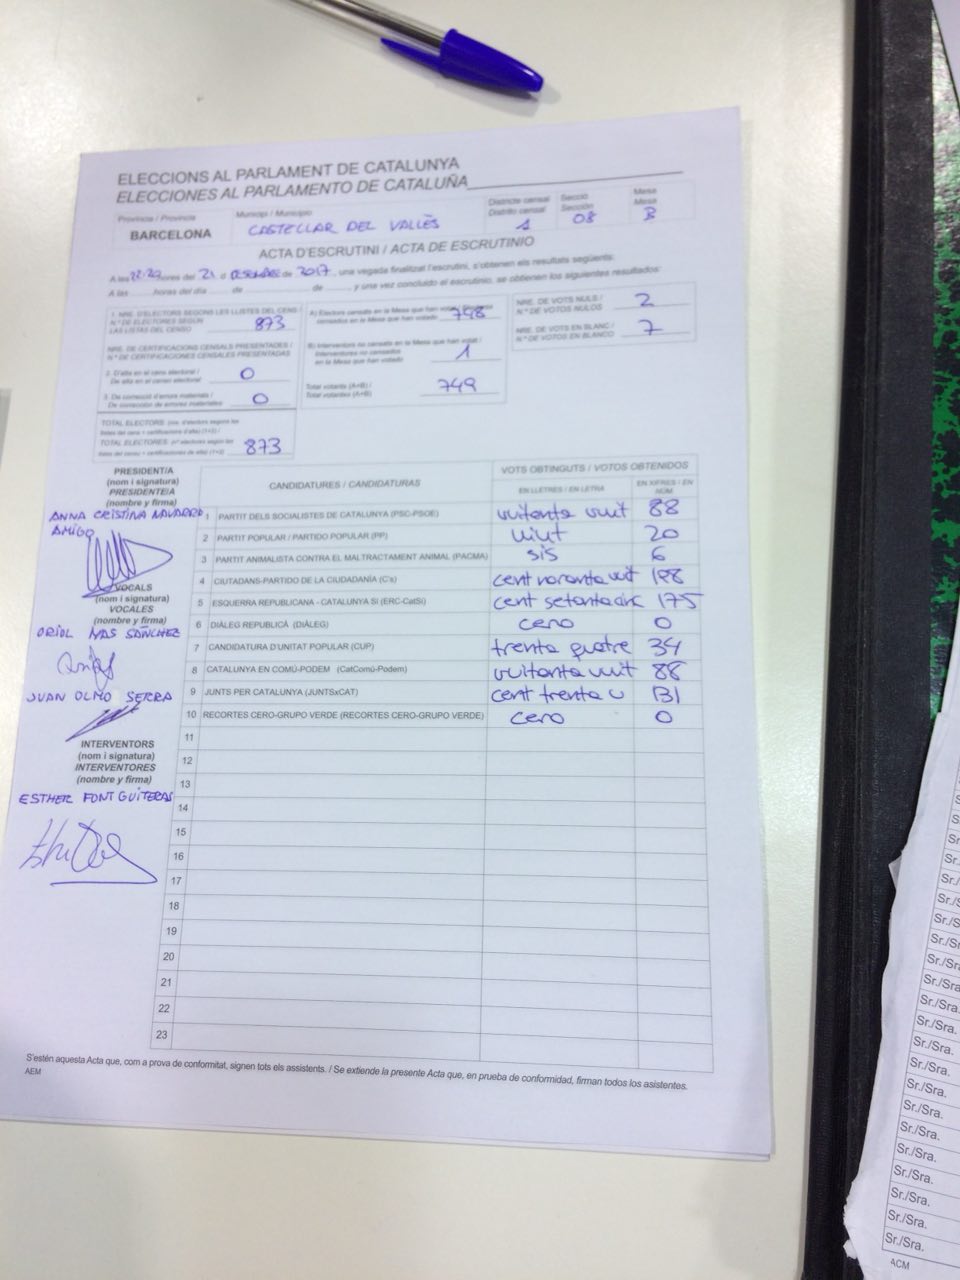 ELECCIONS AL PARLAMENT DE CATALUNYA
ELECCIONES AL PARLAMENTO DE CATALUÑA
Província / Provincia
BARCELONA
Municipi / Municipio
CASTELLAR DEL VALLÈS
Districte censal
Distrito censal
1
Secció
Sección
08
Mesa
Mesa
B
ACTA D'ESCRUTINI / ACTA DE ESCRUTINIO
A les 22:20 hores del 21 d DESEMBRE de 2017, una vegada finalitzat l'escrutini, s'obtenen els resultats següents:
A las horas del día de de , y una vez concluido el escrutinio, se obtienen los siguientes resultados:
1. NRE. D'ELECTORS SEGONS LES LLISTES DEL CENS /
N.º DE ELECTORES SEGÚN
LAS LISTAS DEL CENSO 873
NRE. DE CERTIFICACIONS CENSALS PRESENTADES /
N.º DE CERTIFICACIONES CENSALES PRESENTADAS
2. D'alta en el cens electoral /
De alta en el censo electoral 0
3. De correcció d'errors materials /
De corrección de errores materiales 0
TOTAL ELECTORS: (nre. d'electors segons les
llistes del cens + certificacions d'alta) (1+2) /
TOTAL ELECTORES: (nº electores según las
listas del censo + certificaciones de alta) (1+2) 873
A) Electors censats en la Mesa que han votat /
censados en la Mesa que han votado 748
B) Interventors no censats en la Mesa que han votat /
Interventores no censados
en la Mesa que han votado 1
Total votants (A+B) /
Total votantes (A+B) 749
NRE. DE VOTS NULS /
N.º DE VOTOS NULOS 2
NRE. DE VOTS EN BLANC /
N.º DE VOTOS EN BLANCO 7
PRESIDENT/A
(nom i signatura)
PRESIDENTE/A
(nombre y firma)
ANNA CRISTINA NAVARRO
AMIGO
VOCALS
(nom i signatura)
VOCALES
(nombre y firma)
ORIOL MAS SÁNCHEZ
JUAN OLMO SERRA
INTERVENTORS
(nom i signatura)
INTERVENTORES
(nombre y firma)
ESTHER FONT GUITERAS
CANDIDATURES / CANDIDATURAS
VOTS OBTINGUTS / VOTOS OBTENIDOS
EN LLETRES / EN LETRA
EN XIFRES / EN NÚM
1 PARTIT DELS SOCIALISTES DE CATALUNYA (PSC-PSOE) vuitanta vuit 88
2 PARTIT POPULAR / PARTIDO POPULAR (PP) vint 20
3 PARTIT ANIMALISTA CONTRA EL MALTRACTAMENT ANIMAL (PACMA) sis 6
4 CIUTADANS-PARTIDO DE LA CIUDADANÍA (C's) cent noranta vuit 198
5 ESQUERRA REPUBLICANA - CATALUNYA SÍ (ERC-CatSí) cent setanta cinc 175
6 DIÀLEG REPUBLICÀ (DIÀLEG) cero 0
7 CANDIDATURA D'UNITAT POPULAR (CUP) trenta quatre 34
8 CATALUNYA EN COMÚ-PODEM (CatComú-Podem) vuitanta vuit 88
9 JUNTS PER CATALUNYA (JUNTSxCAT) cent trenta u 131
10 RECORTES CERO-GRUPO VERDE (RECORTES CERO-GRUPO VERDE) cero 0
11
12
13
14
15
16
17
18
19
20
21
22
23
S'estén aquesta Acta que, com a prova de conformitat, signen tots els assistents. / Se extiende la presente Acta que, en prueba de conformidad, firman todos los asistentes.
AEM
Sr./Sra.
Sr./Sra.
Sr./Sra.
Sr./Sra.
Sr./Sra.
Sr./Sra.
Sr./Sra.
Sr./Sra.
Sr./Sra.
Sr./Sra.
Sr./Sra.
Sr./Sra.
Sr./Sra.
Sr./Sra.
Sr./Sra.
ACM